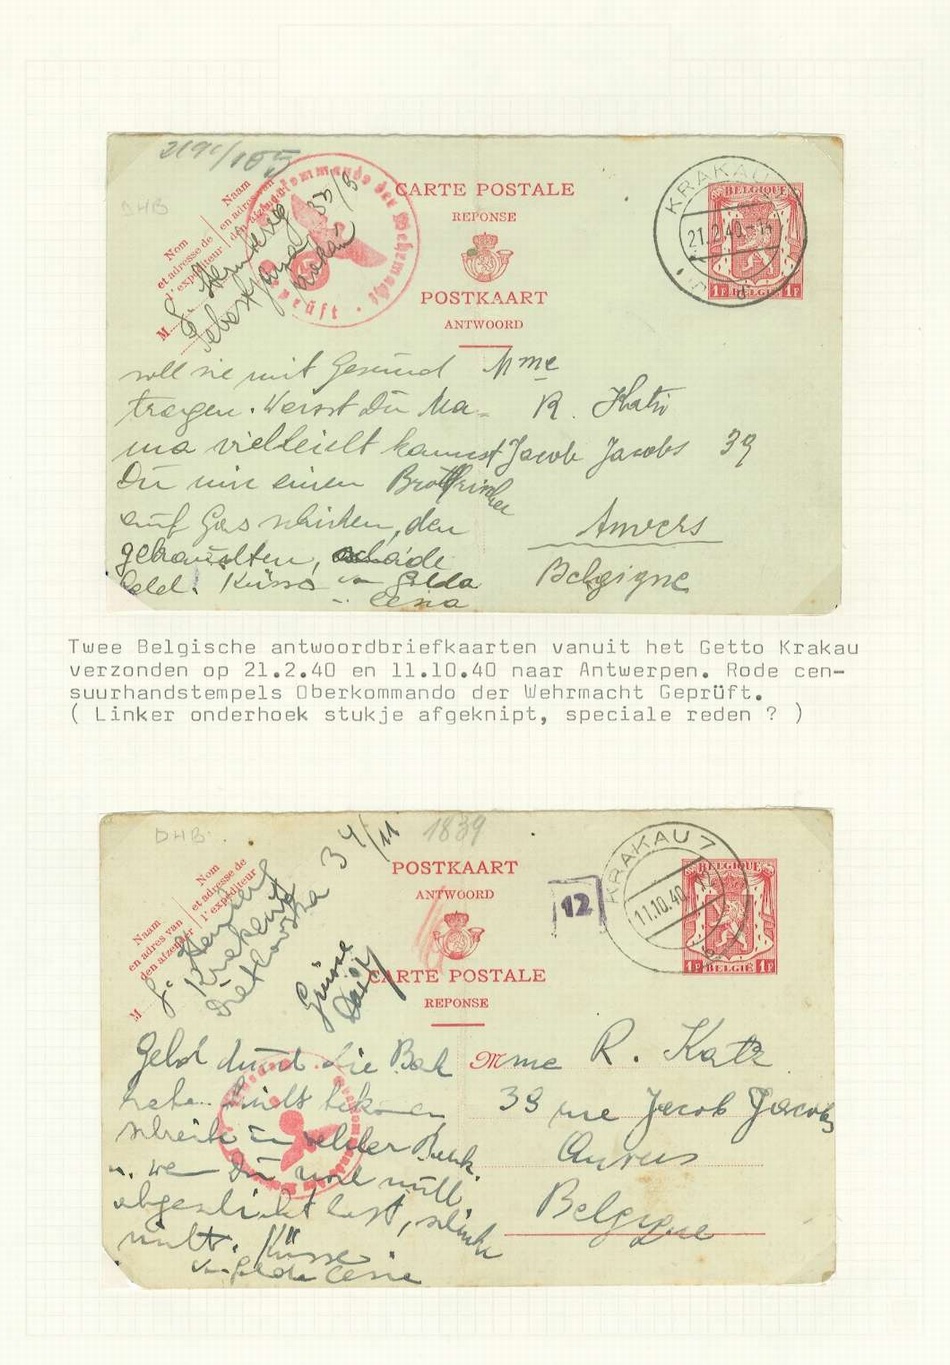 2191/105
DHB
Nom
et adresse de
l'expéditeur
Naam
en adres van
den afzender
M
CARTE POSTALE
REPONSE
POSTKAART
ANTWOORD
Oberkommando der Wehrmacht
Geprüft
KRAKAU
21.2.40
BELGIQUE
1F BELGIË 1F
soll sie mit Gesund
tragen. Weisst Du Ma-
ma vielleicht kannst
Du mir einen
auf Gas schicken, den
gebrauchten, schade
Geld. Küsse von Golda
" Cesia
Mme
R. Katz
Jacob Jacobs 39
Anvers
Belgique
Twee Belgische antwoordbriefkaarten vanuit het Getto Krakau
verzonden op 21.2.40 en 11.10.40 naar Antwerpen. Rode cen-
suurhandstempels Oberkommando der Wehrmacht Geprüft.
( Linker onderhoek stukje afgeknipt, speciale reden ? )
DHB
1839
34/11
Naam
en adres van
den afzender
Nom
et adresse de
l'expéditeur
M
Krakau
Dietlowska
Grüsse
POSTKAART
ANTWOORD
CARTE POSTALE
REPONSE
12
KRAKAU 7
11.10.40
BELGIQUE
1F BELGIË 1F
Geld durch die Bank
habe nicht bekomen
schreibe in welcher Bank
u. wen Du noch nicht
abgeschickt hast, schicke
nicht. Küsse
von Golda Cesia
Mme R. Katz
39 rue Jacob Jacobs
Anvers
Belgique